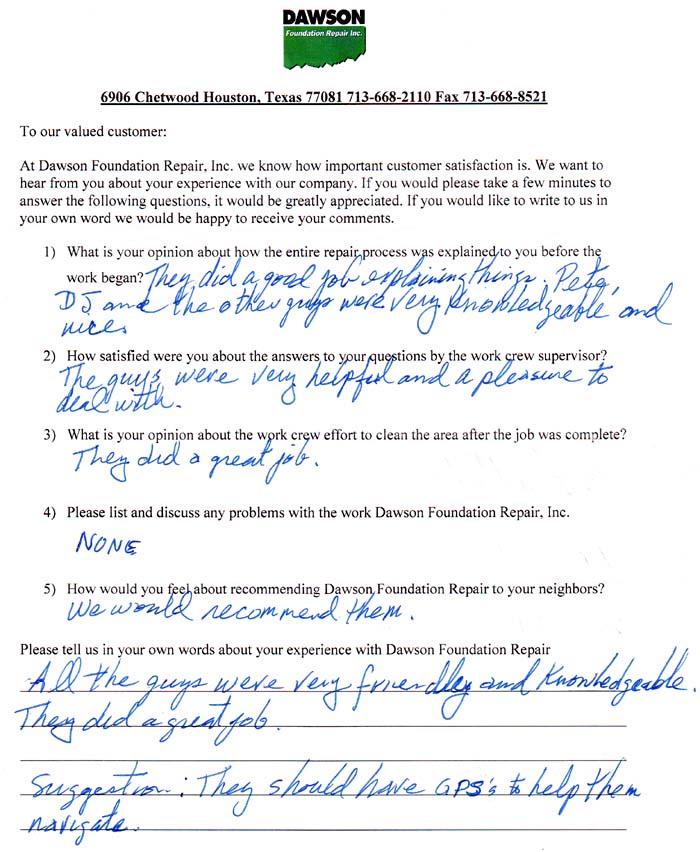 DAWSON
Foundation Repair Inc.
6906 Chetwood Houston, Texas 77081 713-668-2110 Fax 713-668-8521
To our valued customer:
At Dawson Foundation Repair, Inc. we know how important customer satisfaction is. We want to
hear from you about your experience with our company. If you would please take a few minutes to
answer the following questions, it would be greatly appreciated. If you would like to write to us in
your own word we would be happy to receive your comments.
1) What is your opinion about how the entire repair process was explained to you before the
work began? They did a good job explaining things. Pete,
DJ and the other guys were very knowledgeable and
nice.
2) How satisfied were you about the answers to your questions by the work crew supervisor?
The guys were very helpful and a pleasure to
deal with.
3) What is your opinion about the work crew effort to clean the area after the job was complete?
They did a great job.
4) Please list and discuss any problems with the work Dawson Foundation Repair, Inc.
NONE
5) How would you feel about recommending Dawson Foundation Repair to your neighbors?
We would recommend them.
Please tell us in your own words about your experience with Dawson Foundation Repair
All the guys were very friendley and knowledgeable.
They did a great job.
Suggestion: They should have GPS's to help them
navigate.